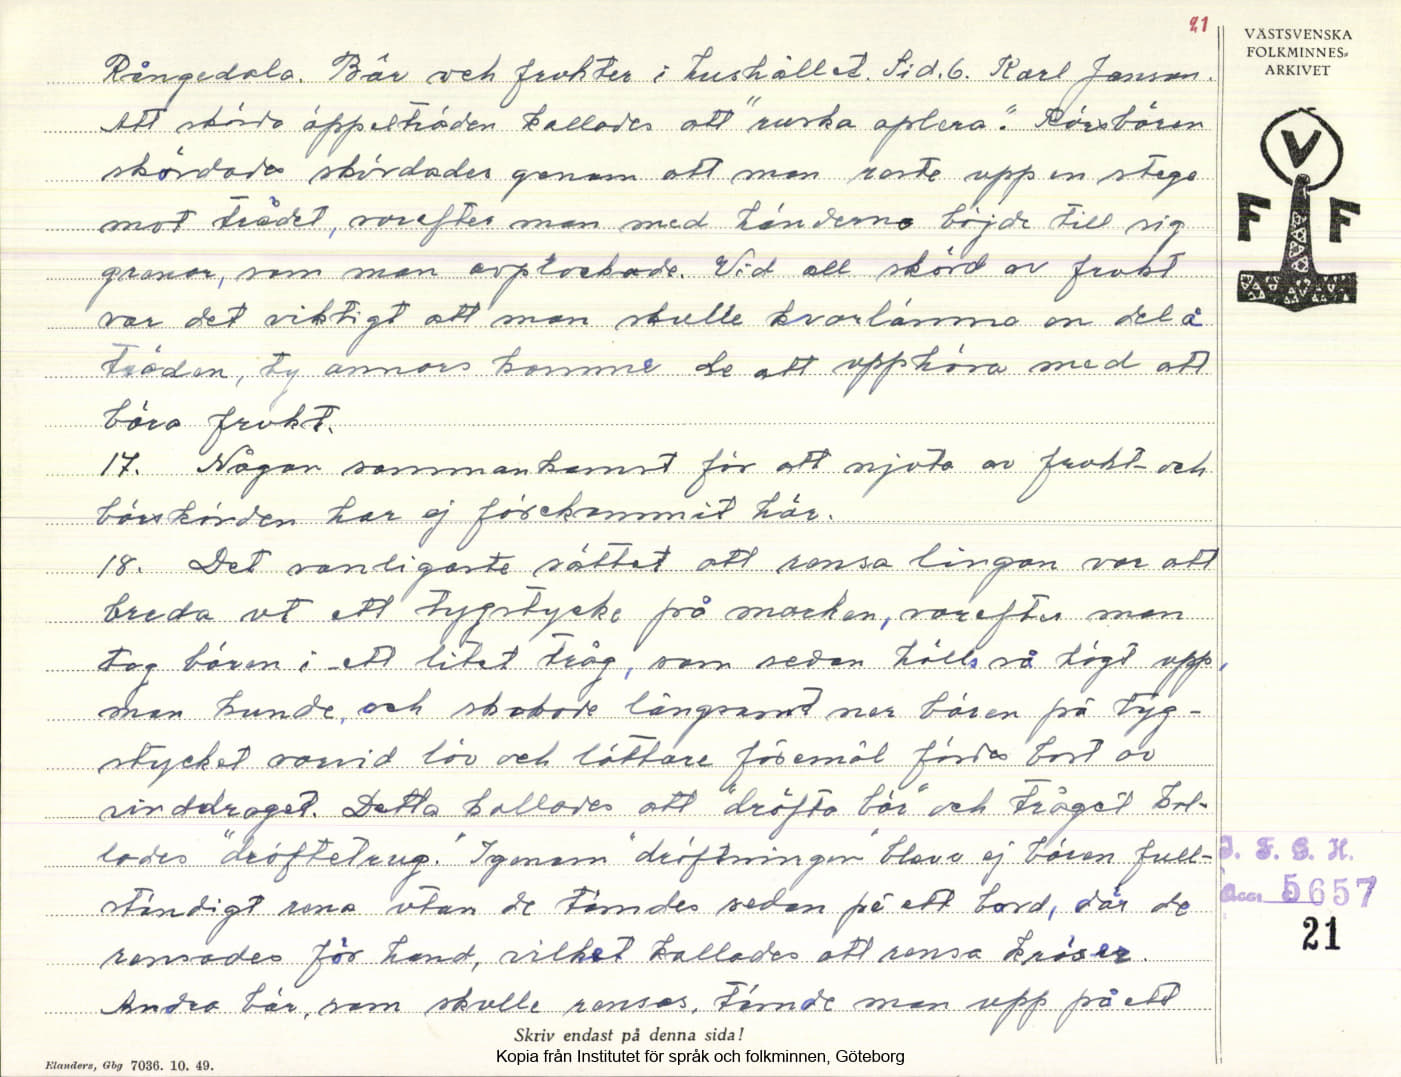 21
VÄSTSVENSKA
FOLKMINNES-
ARKIVET
V
F F
Rångedala. Bär och frukter i hushållet. Sid. 6. Karl Janson.
Att skörda äppelträden kallades att "ruska aplera". Körsbären
skördades skördades genom att man reste upp en stege
mot trädet, varefter man med händerna böjde till sig
grenar, som man avplockade. Vid all skörd av frukt
var det viktigt att man skulle kvarlämna en del å
träden, ty annars komme de att upphöra med att
bära frukt.
17. Någon sammankomst för att njuta av frukt- och
bärskörden har ej förekommit här.
18. Det vanligaste sättet att rensa lingon var att
breda ut ett tygstycke på marken, varefter man
tog bären i ett litet tråg, som sedan hölls så högt upp,
man kunde, och skakade långsamt ner bären på tyg-
stycket varvid löv och lättare föremål fördes bort av
vinddraget. Detta kallades att "dröfta bär" och tråget kal-
lades "dröftetrug." Igenom "dröftningen" bleve ej bären full-
ständigt rena utan de tömdes sedan på ett bord, där de
rensades för hand, vilket kallades att rensa kröser.
Andra bär, som skulle rensas, tömde man upp på ett
I. F. G. H.
Acc. 5657
21
Skriv endast på denna sida!
Kopia från Institutet för språk och folkminnen, Göteborg
Elanders, Gbg 7036. 10. 49.